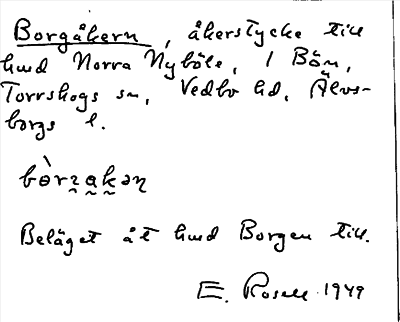 Borgåkern, åkerstycke till
hmd Norra Nyböle, 1 Bön,
Torrskogs sn, Vedbo hd, Älvs-
borgs l.
Beläget åt hmd Borgen till.
E. Rosell 1949